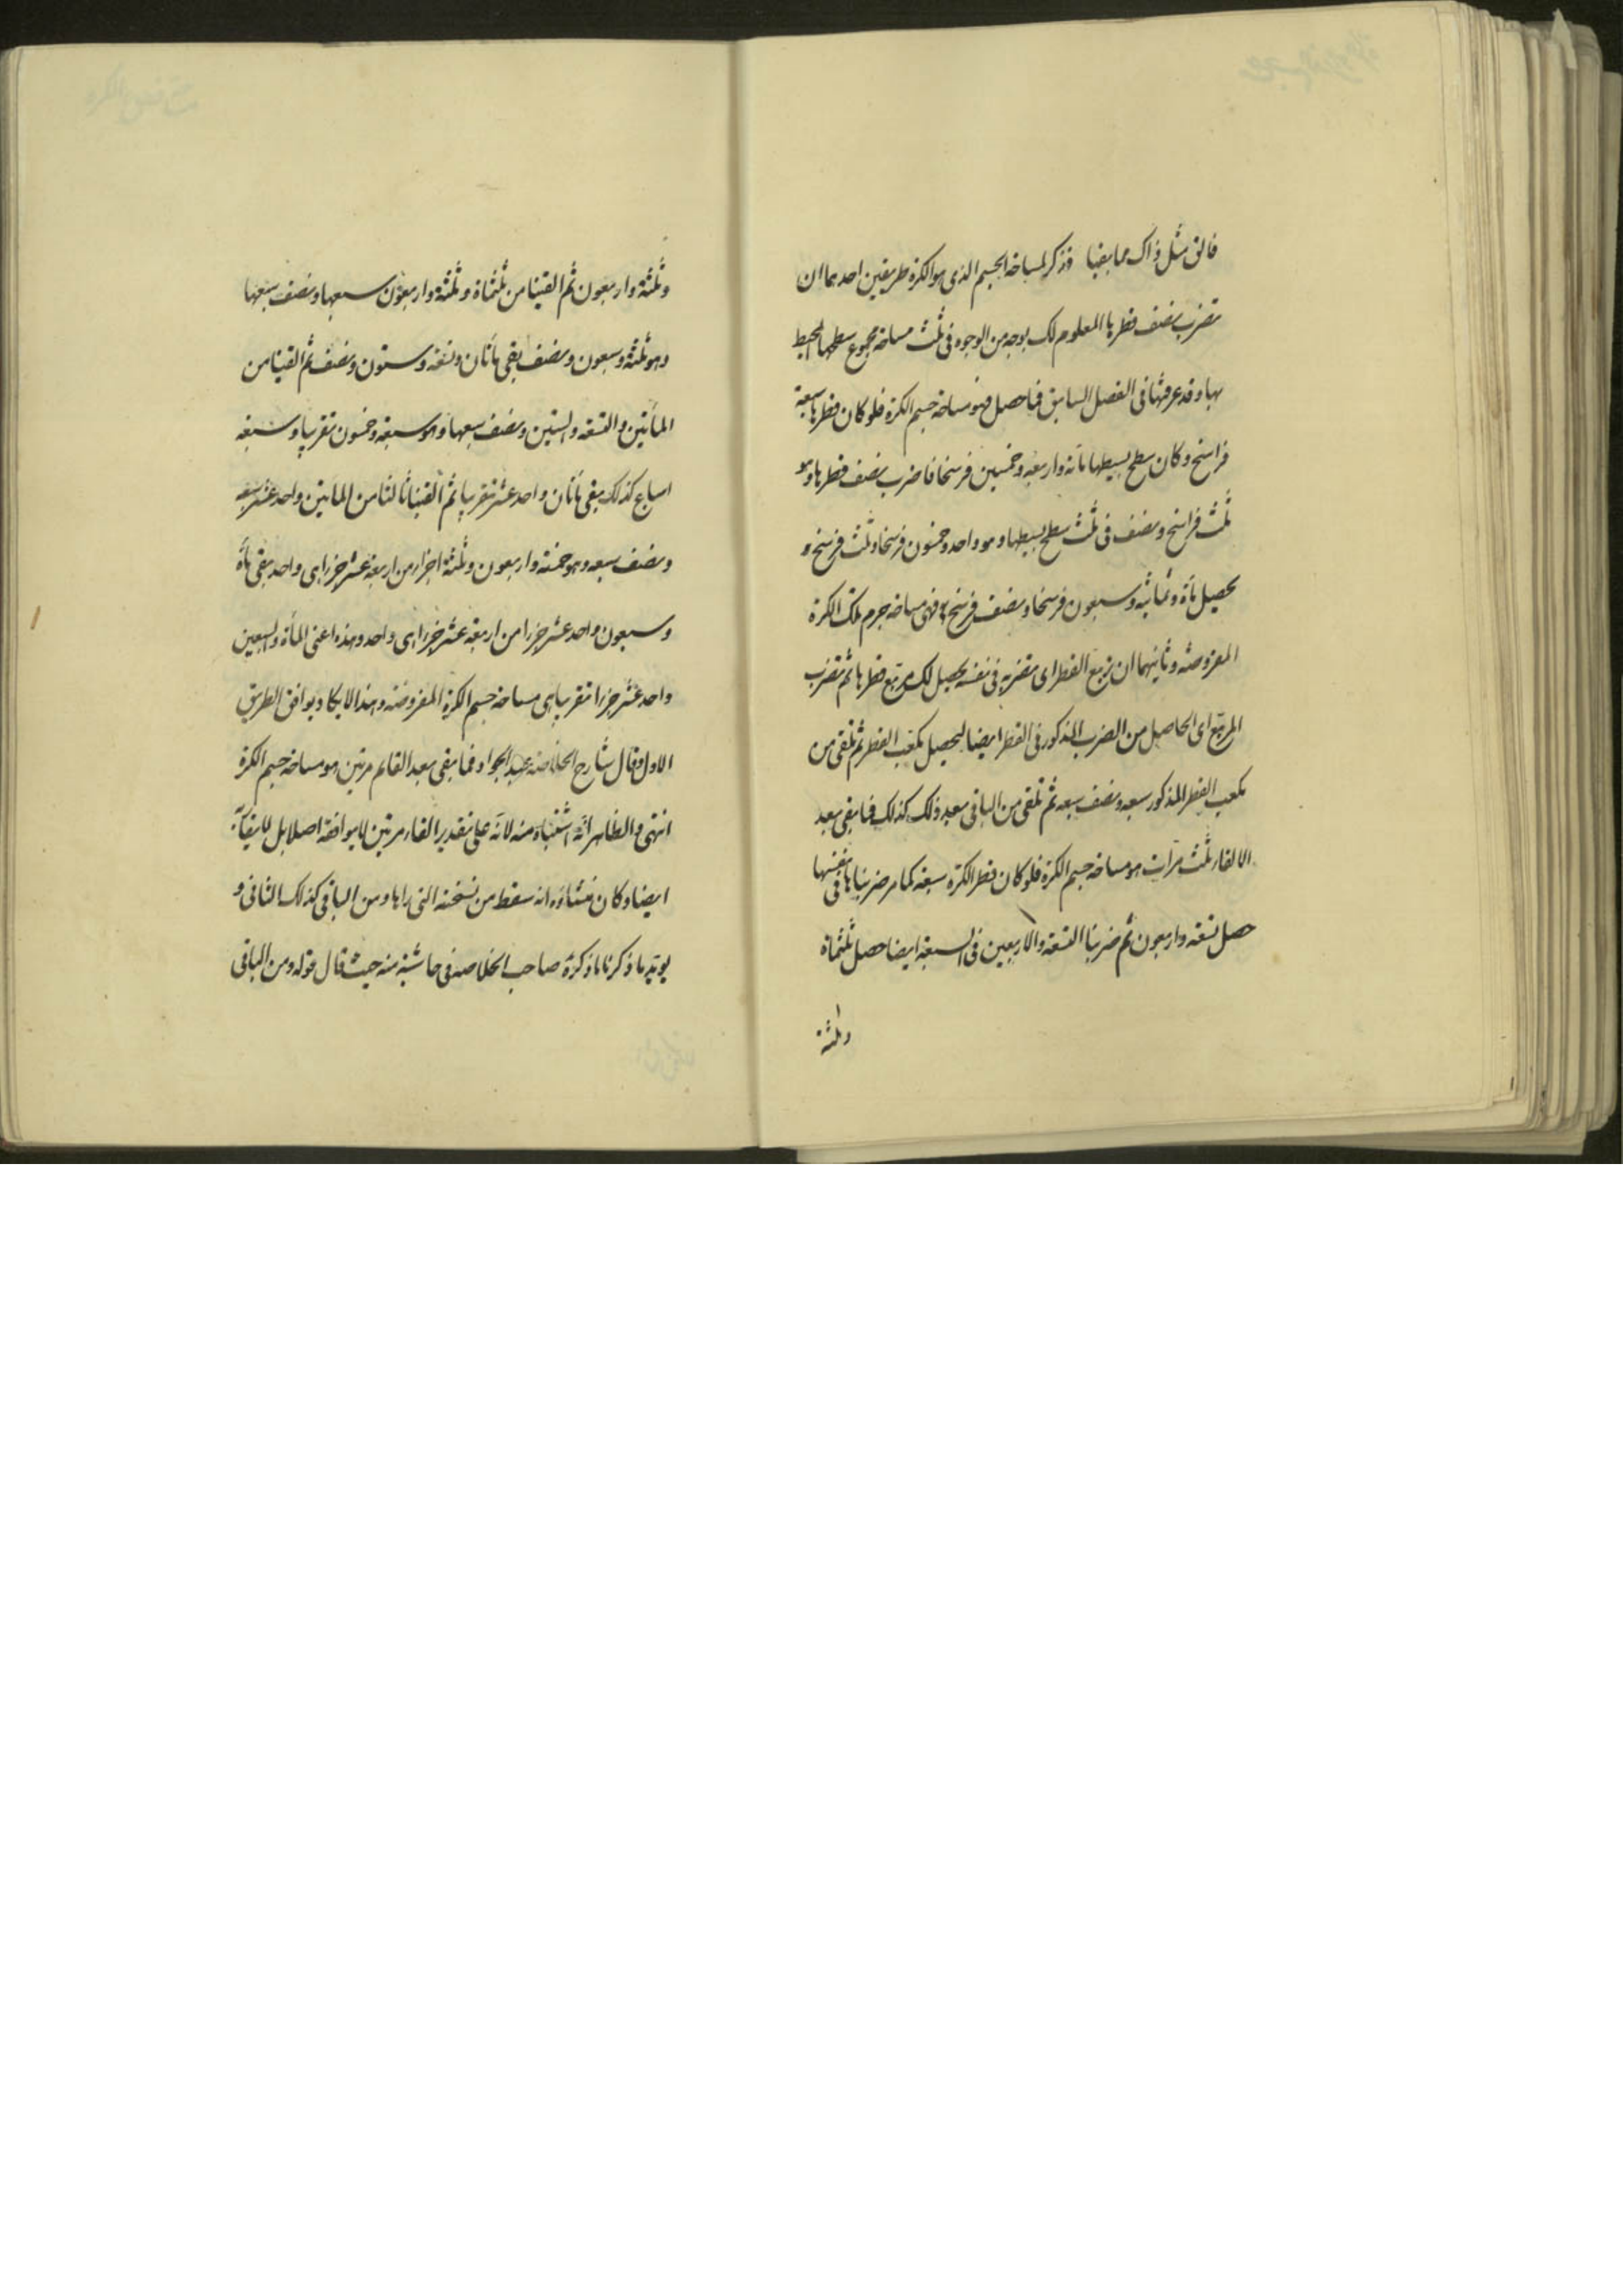 فالق مثل ذاك مما بقيا وذكر لمساحة الجسم الذى هو الكرة طريقين احدهما ان
تضرب نصف قطرها المعلوم لك بوجه من الوجوه فى ثلث مساحة مجموع سطحها المحيط
بها وقد عرفتها فى الفصل السابق فما حصل فهو مساحة جسم الكرة فلو كان قطرها سبعة
فراسخ وكان سطح بسيطها مائة واربعة وخمسين فرسخا فاضرب نصف قطرها وهو
ثلث فراسخ ونصف فى ثلث سطح بسيطها وهو واحد وخمسون فرسخا وثلث فرسخ و
يحصل مأة وثمانية وسبعون فرسخا ونصف فرسخ فهى مساحة جرم تلك الكرة
المفروضة وثانيهما ان تربع القطر اى تضربه فى نفسه يحصل لك مربع قطرها ثم تضرب
المربع اى الحاصل من الضرب المذكور فى القطر ايضا ليحصل مكعب القطر ثم تلقى من
مكعب القطر المذكور سبعه ونصف سبعه ثم تلقى من الباقى بعد ذلك كذلك فما بقى بعد
الالقاء ثلث مرات هو مساحة جسم الكرة فلو كان قطر الكرة سبعة كما مر ضربناها فى نفسها
حصل تسعة واربعون ثم ضربنا التسعة والاربعين فى السبعة ايضا حصل ثلثماة
وثلثة
وثلثة واربعون ثم القينا من ثلثماة وثلثة واربعون سبعها ونصف سبعها
وهو ثلثة وسبعون ونصف بقى مأتان وتسعة وستون ونصف ثم القينا من
المأتين والتسعة والستين ونصف سبعها وهو سبعة وخمسون تقريبا وسبعة
اسباع كذلك بقى مأتان واحد عشر تقريبا ثم القينا ثالثا من المأتين واحد عشر سبعه
ونصف سبعه وهو خمسة واربعون وثلثة اجزاء من اربعة عشر جزء اى واحد بقى مأة
وسبعون واحد عشر جزءا من اربعة عشر جزء اى واحد وهذه اعنى المأة والسبعين
واحد عشر جزءا تقريبا هى مساحة جسم الكرة المفروضة وهذا لا يكاد يوافق الطريق
الاول وقال شارح الخلاصة عبد الجواد فما بقى بعد القائهم مرتين هو مساحة جسم الكرة
انتهى والظاهر انه اشتباه منه لانه على تقدير القاء مرتين لا يوافقه اصلا بل لا يقاربه
ايضا وكان منشاؤه انه سقط من نسخته التى راها ومن الباقى كذلك الثانى و
يؤيد ما ذكرنا ما ذكره صاحب الخلاصة فى حاشية منه حيث قال قوله ومن الباقى